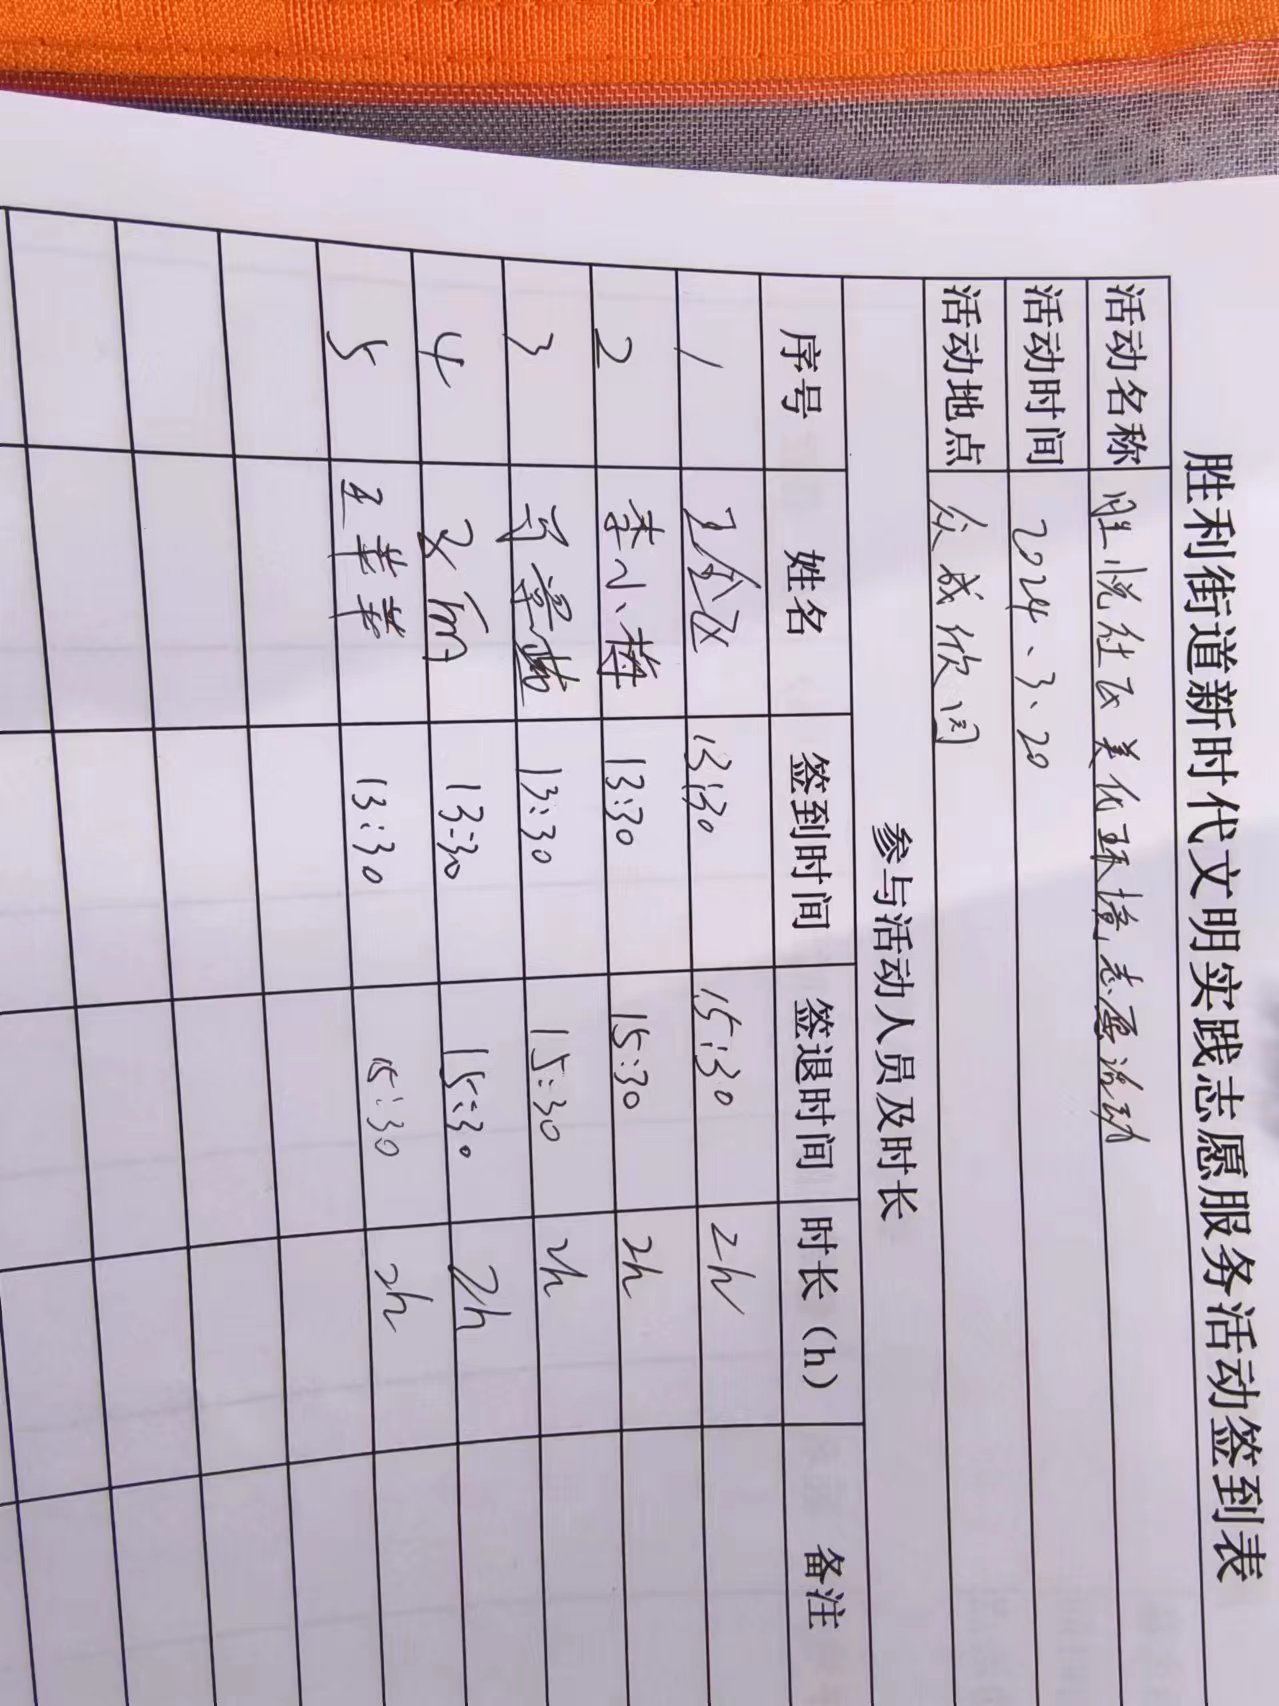 胜利街道新时代文明实践志愿服务活动签到表
活动名称 胜悦社区美化环境志愿活动
活动时间 2024、3、20
活动地点 众成欣园
参与活动人员及时长
序号 姓名 签到时间 签退时间 时长（h） 备注
1 13:30 15:30 2h
2 李小梅 13:30 15:30 2h
3 13:30 15:30 2h
4 13:30 15:30 2h
5 13:30 15:30 2h